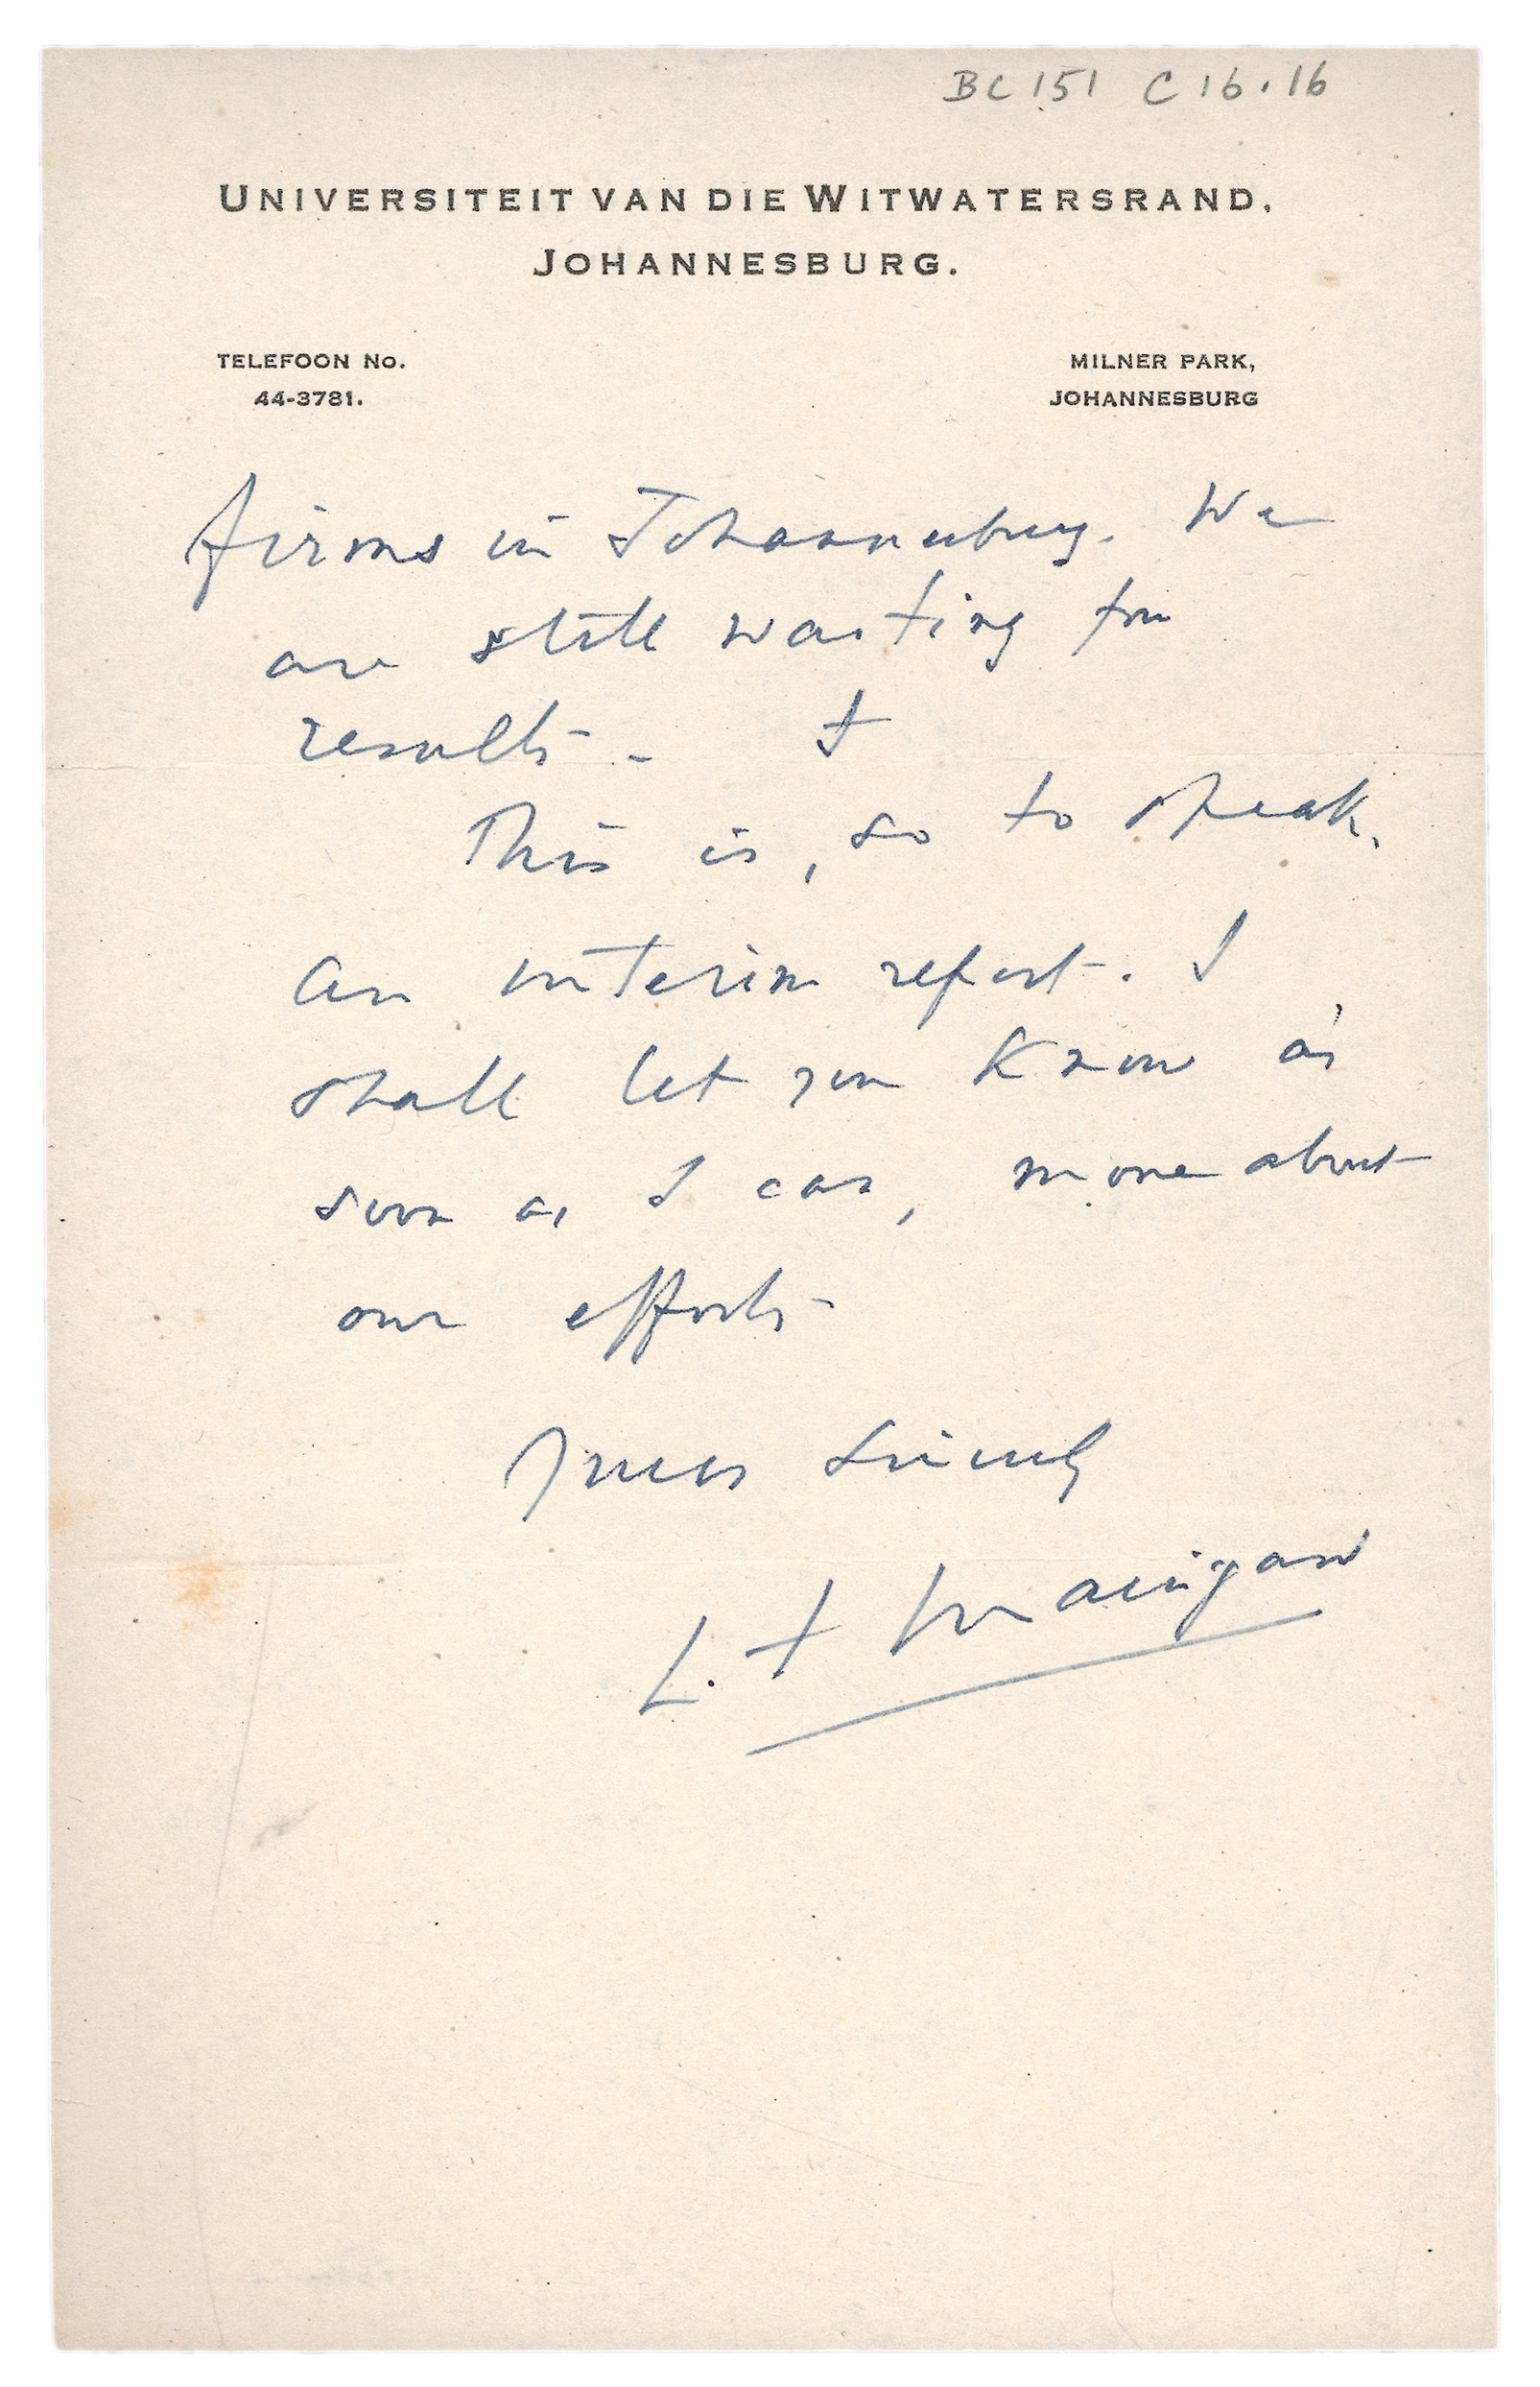 BC 151 C 16.16
UNIVERSITEIT VAN DIE WITWATERSRAND,
JOHANNESBURG.
TELEFOON No. MILNER PARK,
44-3781. JOHANNESBURG
firms in Johannesburg. We
are still waiting for
results - I
This is, so to speak,
an interim report. I
shall let you know as
soon as I can, more about
our efforts
Yours sincerely
L. F Maingard